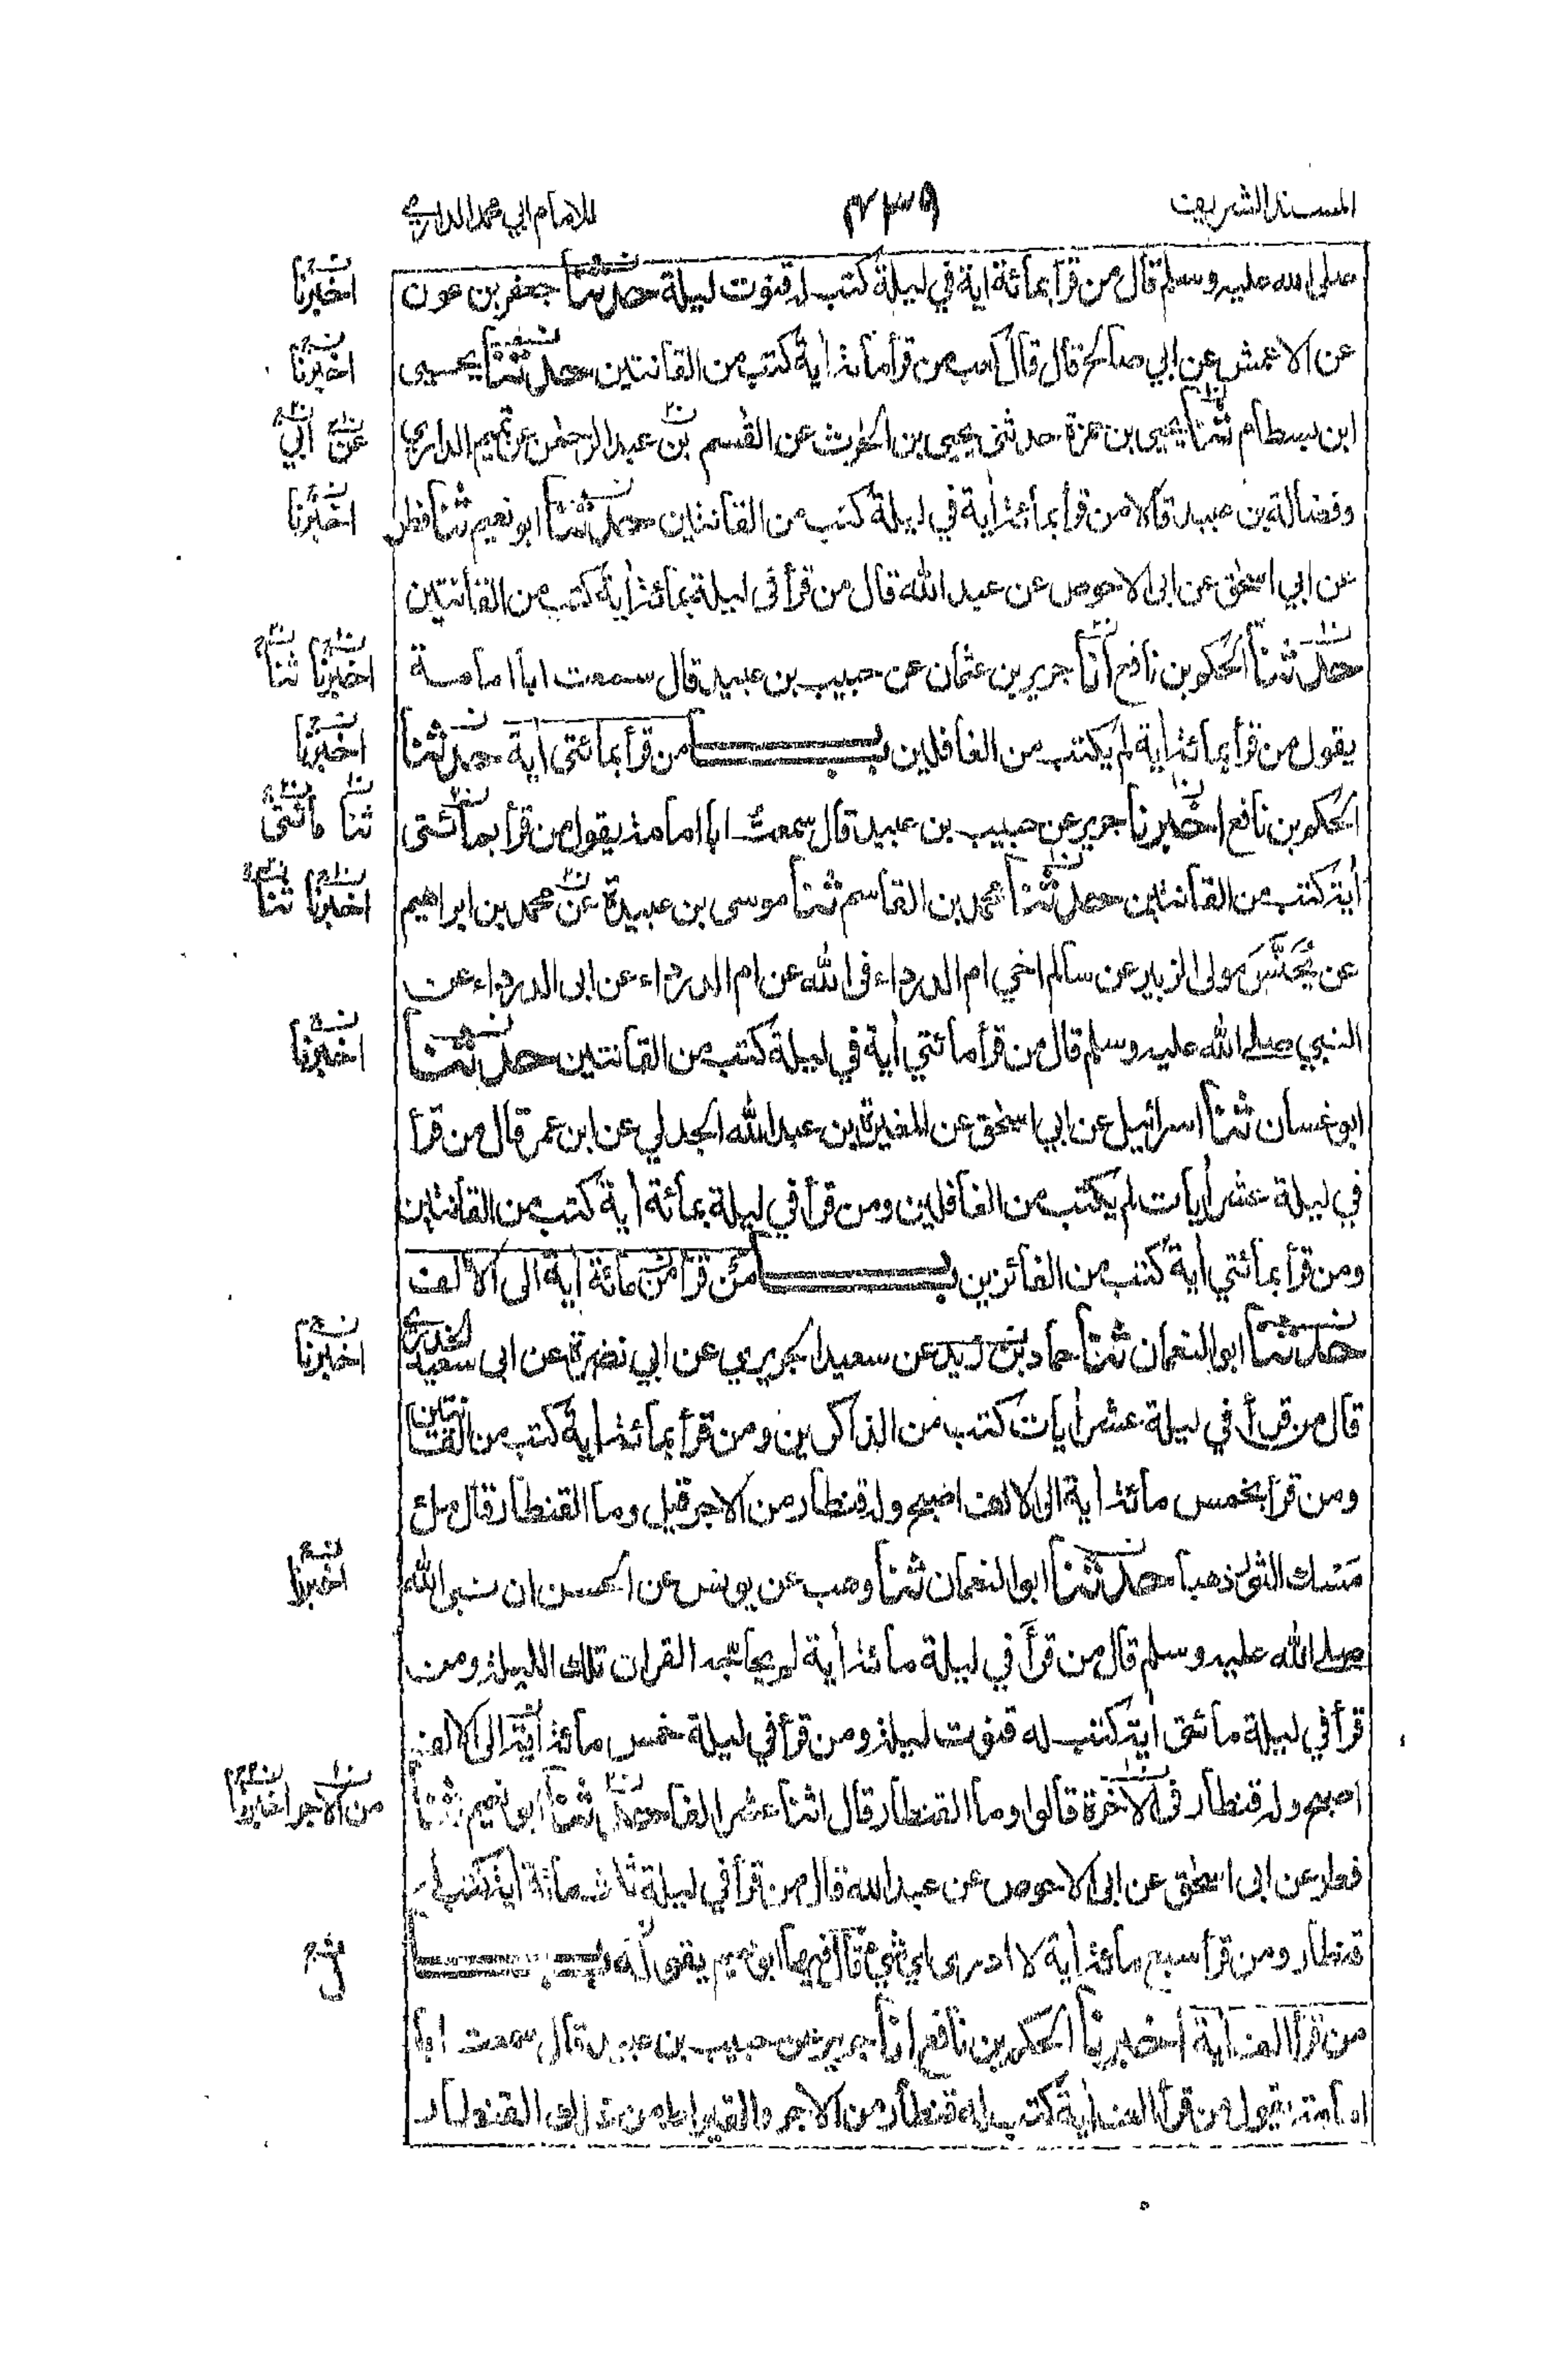 المسند الشريف ٤٣٩ للامام ابي محمد الدارمي
صلى الله عليه وسلم قال من قرأ بمائة اية في ليلة كتب له قنوت ليلة حدثنا جعفر بن عون
اخبرنا
عن الاعمش عن ابي صالح قال قال كعب من قرأ مائة اية كتب من القانتين حدثنا يحيى
اخبرنا
ابن بسطام ثنا يحيى بن حمزة حدثني يحيى بن الحرث عن القسم بن عبد الرحمن عن تميم الداري
عن ابي
وفضالة بن عبيد قالا من قرأ بمائة اية في ليلة كتب من القانتين حدثنا ابو نعيم ثنا فطر
اخبرنا
عن ابي اسحق عن ابى الاحوص عن عبد الله قال من قرأ فى ليلة بمائة اية كتب من القانتين
حدثنا الحكم بن نافع انا جرير بن عثمان عن حبيب بن عبيد قال سمعت ابا امامة
اخبرنا ثنا
يقول من قرأ بمائة اية لم يكتب من الغافلين باب من قرأ بمائتى اية حدثنا
اخبرنا
الحكم بن نافع اخبرنا جرير عن حبيب بن عبيد قال سمعت ابا امامة يقول من قرأ بمائتى
ثنا مائتى
اية كتب من القانتين حدثنا محمد بن القاسم ثنا موسى بن عبيدة عن محمد بن ابراهيم
اخبرنا ثنا
عن يُحَنَّسَ مولى الزبير عن سالم اخي ام الدرداء فى الله عن ام الدرداء عن ابى الدرداء عن
النبي صلى الله عليه وسلم قال من قرأ مائتي اية في ليلة كتب من القانتين حدثنا
اخبرنا
ابو غسان ثنا اسرائيل عن ابي اسحق عن المغيرة بن عبد الله الجدلي عن ابن عمر قال من قرأ
في ليلة عشر ايات لم يكتب من الغافلين ومن قرأ في ليلة بمائة اية كتب من القانتين
ومن قرأ بمائتي اية كتب من الفائزين باب من قرأ من مائة اية الى الالف
حدثنا ابو النعمان ثنا حماد بن زيد عن سعيد الجريري عن ابي نضرة عن ابى سعيد الخدري
اخبرنا
قال من قرأ في ليلة عشر ايات كتب من الذاكرين ومن قرأ بمائة اية كتب من القانتين
ومن قرأ بخمس مائة اية الى الالف اصبح وله قنطار من الاجر قيل وما القنطار قال ملئ
مَسك الثور ذهبا حدثنا ابو النعمان ثنا وهب عن يونس عن الحسن ان نبي الله
اخبرنا
صلى الله عليه وسلم قال من قرأ في ليلة مائة اية لم يحاجه القران تلك الليلة ومن
قرأ في ليلة مائتى اية كتب له قنوت ليلة ومن قرأ في ليلة خمس مائة اية الى الالف
اصبح وله قنطار فى الاخرة قالوا وما القنطار قال اثنا عشر الفا حدثنا ابو نعيم ثنا
من الاجر اخبرنا
فطر عن ابى اسحق عن ابى الاحوص عن عبد الله قال من قرأ في ليلة ثلثمائة اية كتب له
قنطار ومن قرأ سبع مائة اية لا ادرى اي شي قال فيها ابو نعيم يقوله باب
من قرأ الف اية اخبرنا الحكم بن نافع انا جرير عن حبيب بن عبيد قال سمعت ابا
امامة يقول من قرأ الف اية كتب له قنطار من الاجر والقيراط من ذلك القنطار